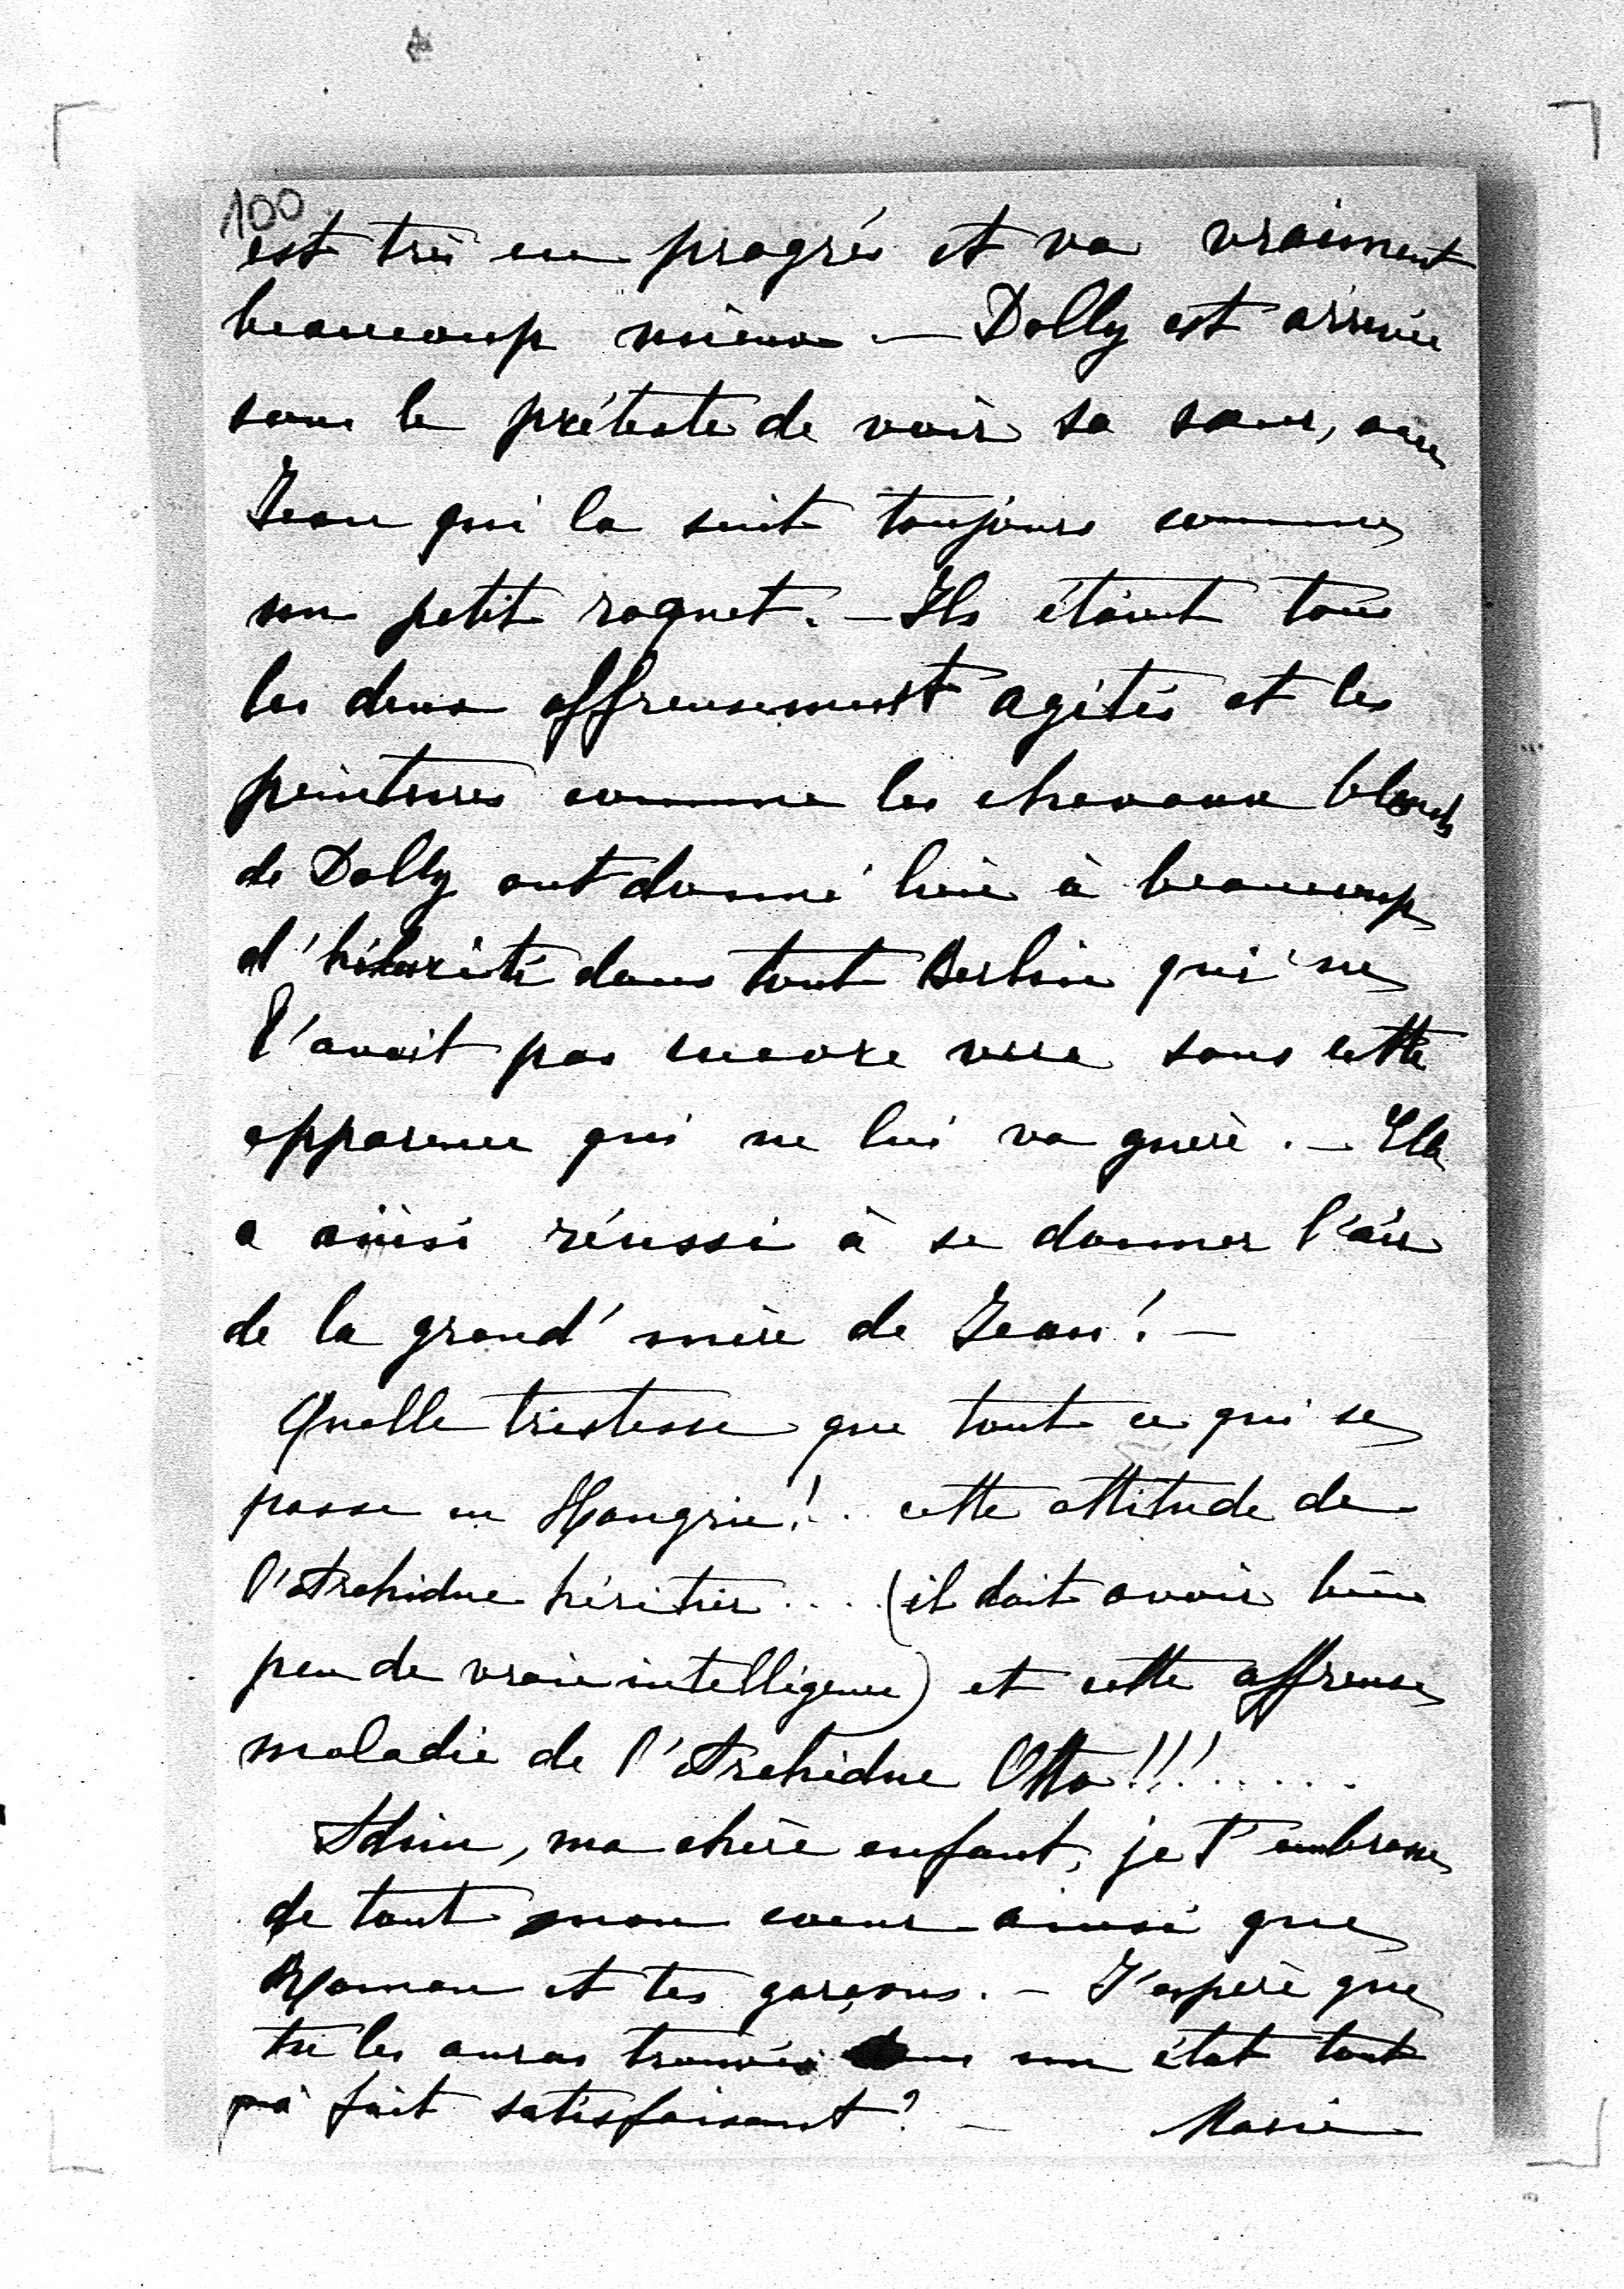 100
est très en progrès et va vraiment
beaucoup mieux. — Dolly est arrivée
sous le prétexte de voir sa sœur, avec
Jean qui la suit toujours comme
un petit roquet. — Ils étaient tous
les deux affreusement agités et les
peintures comme les cheveux blancs
de Dolly ont donné lieu à beaucoup
d'hilarité dans tout Berlin qui ne
l'avait pas encore vue sous cette
apparence qui ne lui va guère. — Elle
a ainsi réussi à se donner l'air
de la grand'mère de Jean! —
Quelle tristesse que tout ce qui se
passe en Hongrie!.. cette attitude de
l'Archiduc héritier.... (il doit avoir bien
peu de vraie intelligence) et cette affreuse
maladie de l'Archiduc Otto!!!.....
Adieu, ma chère enfant, je t'embrasse
de tout mon cœur ainsi que
Maman et tes garçons. — J'espère que
tu les auras trouvés dans un état tout
à fait satisfaisant? — Marie